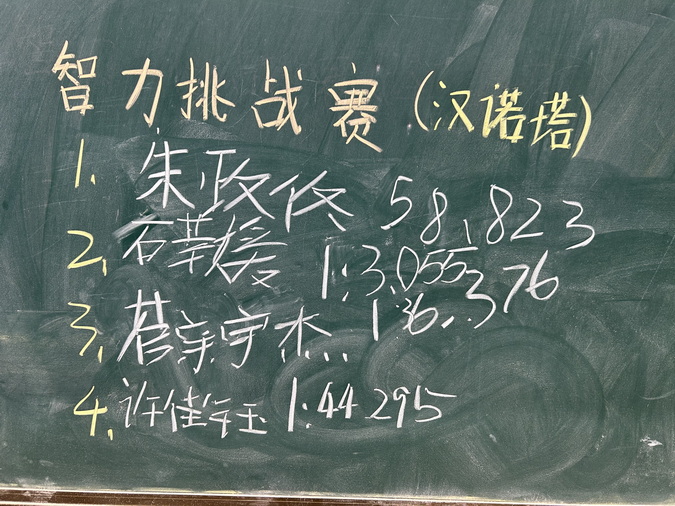 智力挑战赛(汉诺塔)
1. 朱政佟 58.823
2. 石莘媛 1:3.055
3. 宇杰 1:36.376
4. 许佳钰 1:44.295